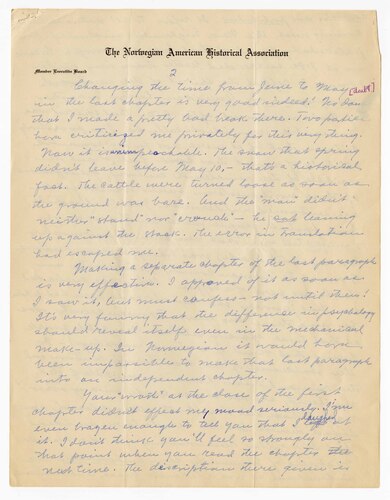 The Norwegian American Historical Association
Member Executive Board
2
Changing the time from June to May [death]
in the last chapter is very good indeed! No doubt
that I made a pretty bad break there. Two
have criticised me privately for this very thing.
Now it is unimpeachable. The snow that spring
didn't leave before May 10, – that's a historical
fact. The cattle were turned loose as soon as
the ground was bare. And the "man" didn't
neither "stand" nor "crouch" – he sat leaning
up against the stack. The error in translation
had escaped me.
Making a separate chapter of the last paragraph
is very effective. I approved of it as soon as
I saw it, but must confess – not until then!
It's very funny that the difference in psychology
should reveal itself even in the mechanical
make-up. In Norwegian it would have
been impossible to make that last paragraph
into an independent chapter.
Your at the close of the first
chapter didn't effect my mood seriously. I'm
even brazen enough to tell you that I laughed at
it. I don't think you'll feel so strongly on
that point when you read the chapter the
next time. The description there given is